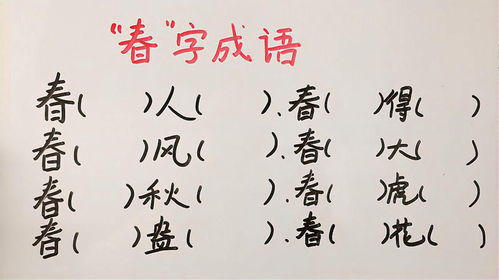 “春”字成语
春( )人( ).春( )得( )
春( )风( ).春( )大( )
春( )秋( ).春( )虎( )
春( )盎( ).春( )花( )